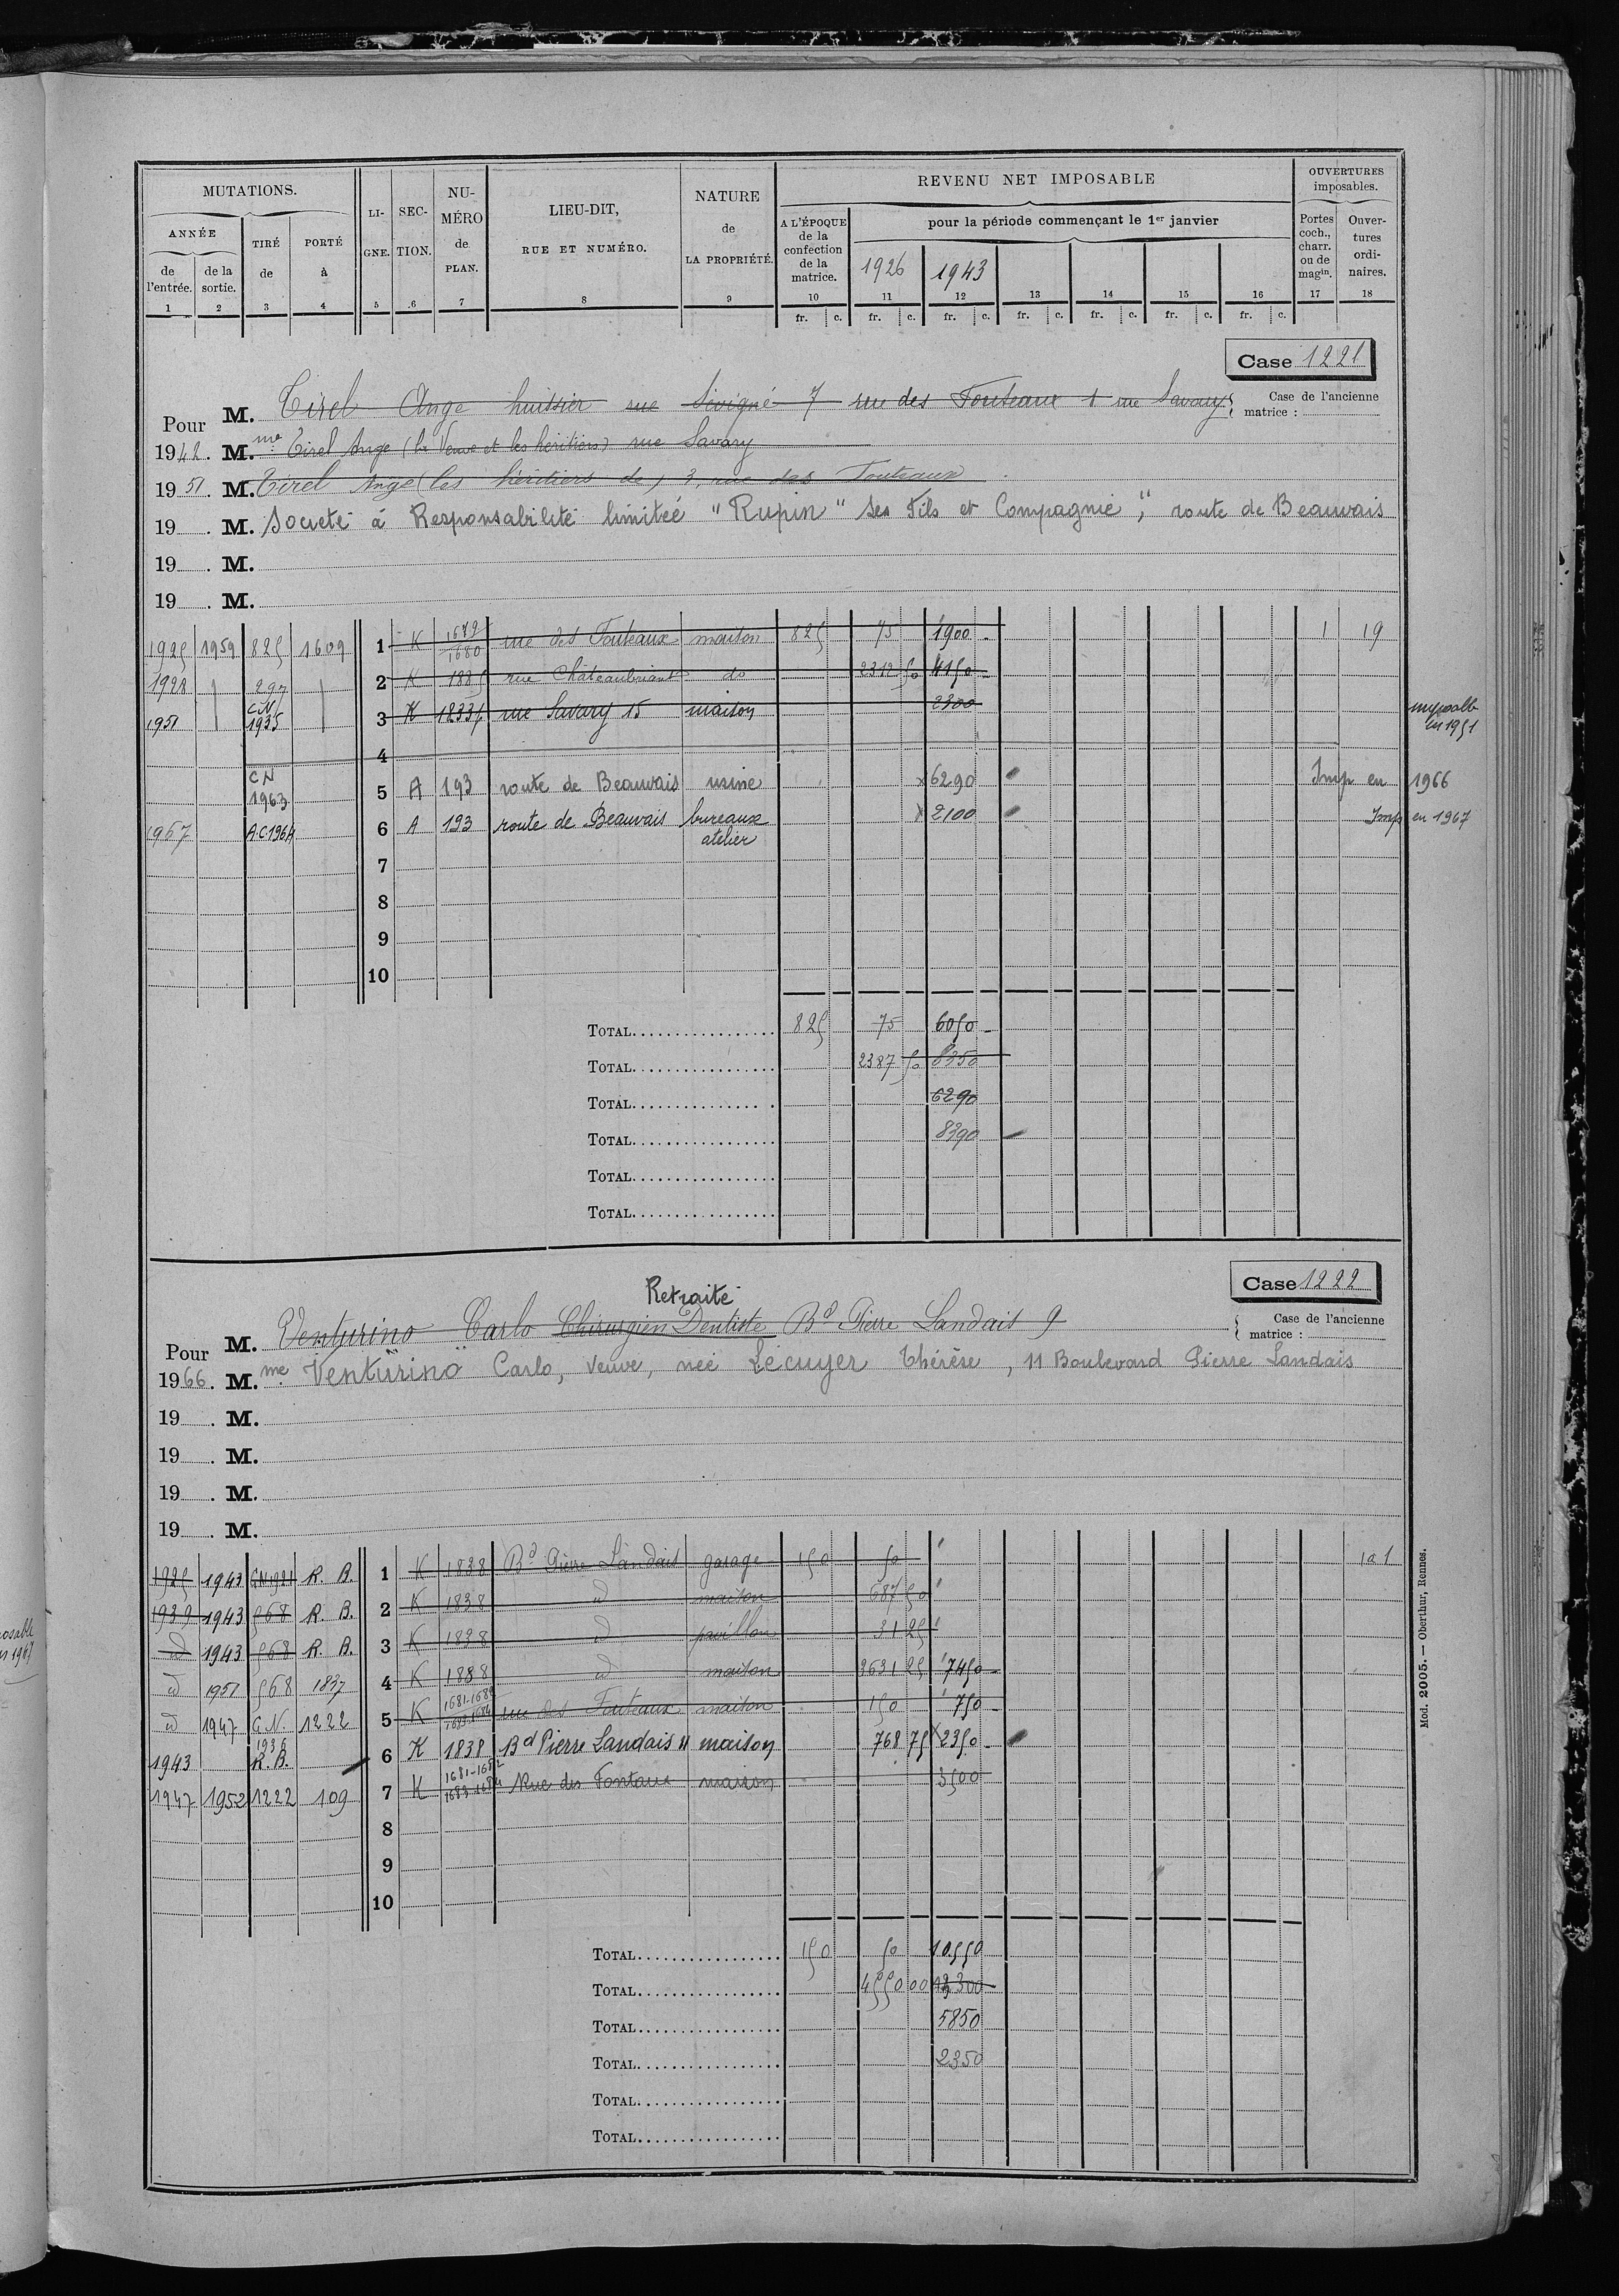 MUTATIONS.
ANNÉE
de l'entrée. 1
de la sortie. 2
TIRÉ de 3
PORTÉ à 4
LIGNE. 5
SECTION. 6
NUMÉRO de PLAN. 7
LIEU-DIT, RUE ET NUMÉRO. 8
NATURE de LA PROPRIÉTÉ. 9
REVENU NET IMPOSABLE
A L'ÉPOQUE de la confection de la matrice. 10
pour la période commençant le 1er janvier
1926 1943
11 12 13 14 15 16
fr. c. fr. c. fr. c. fr. c. fr. c. fr. c. fr. c.
OUVERTURES imposables.
Portes coch., charr. ou de magin. 17
Ouvertures ordinaires. 18
Case 1221
Case de l'ancienne matrice :
Pour M. Tirel Ange huissier rue Sévigné 7 rue des Fouteaux 1 rue Savary
1942. M. me Tirel Ange (la Veuve et les héritiers) rue Savary
1951. M. Tirel Ange (les héritiers de) 3, rue des Fouteaux
19 . M. Société à Responsabilité limitée "Rupin" Ses Fils et Compagnie", route de Beauvais
19 . M.
19 . M.
1925 1959 825 1609 1 K 1679 1680 rue des Fouteaux maison 825 75 1900 1 19
1928 297 2 K 1885 rue Châteaubriant do 2312 50 4150
1951 C.N 1935 3 K 1833 rue Savary 15 maison 2300 imposable en 1951
4
CN 1963 5 A 193 route de Beauvais usine 6290 Imp en 1966
1967 A.C 1964 6 A 193 route de Beauvais bureaux atelier 2100 Imp en 1967
7
8
9
10
TOTAL 825 75 6050
TOTAL 2387 50 8350
TOTAL 6290
TOTAL 8390
TOTAL
TOTAL
Case 1222
Case de l'ancienne matrice :
Retraité
Pour M. Venturino Carlo Chirurgien Dentiste Bd Pierre Landais 9
1966. M. me Venturino Carlo, Veuve, née Lécuyer Thérèse, 11 Boulevard Pierre Landais
19 . M.
19 . M.
19 . M.
19 . M.
1925 1943 C.N 1921 R. B. 1 K 1838 Bd Pierre Landais garage 150 50 1
1939 1943 568 R. B. 2 K 1838 d maison 687 50
d 1943 568 R. B. 3 K 1838 d pavillon 31 25
d 1951 568 1837 4 K 1888 d maison 3631 25 7450
d 1947 C.N. 1936 1222 5 K 1681-1682 1683-1684 rue des Fouteaux maison 150 750
1943 R. B. 6 K 1838 Bd Pierre Landais 11 maison 768 75 2350
1947 1952 1222 109 7 K 1681-1682 1683-1684 Rue des maison 3500
8
9
10
TOTAL 150 50 10550
TOTAL 4550 00 13300
TOTAL 5850
TOTAL 2350
TOTAL
TOTAL
Mod. 2005. — Oberthur, Rennes.